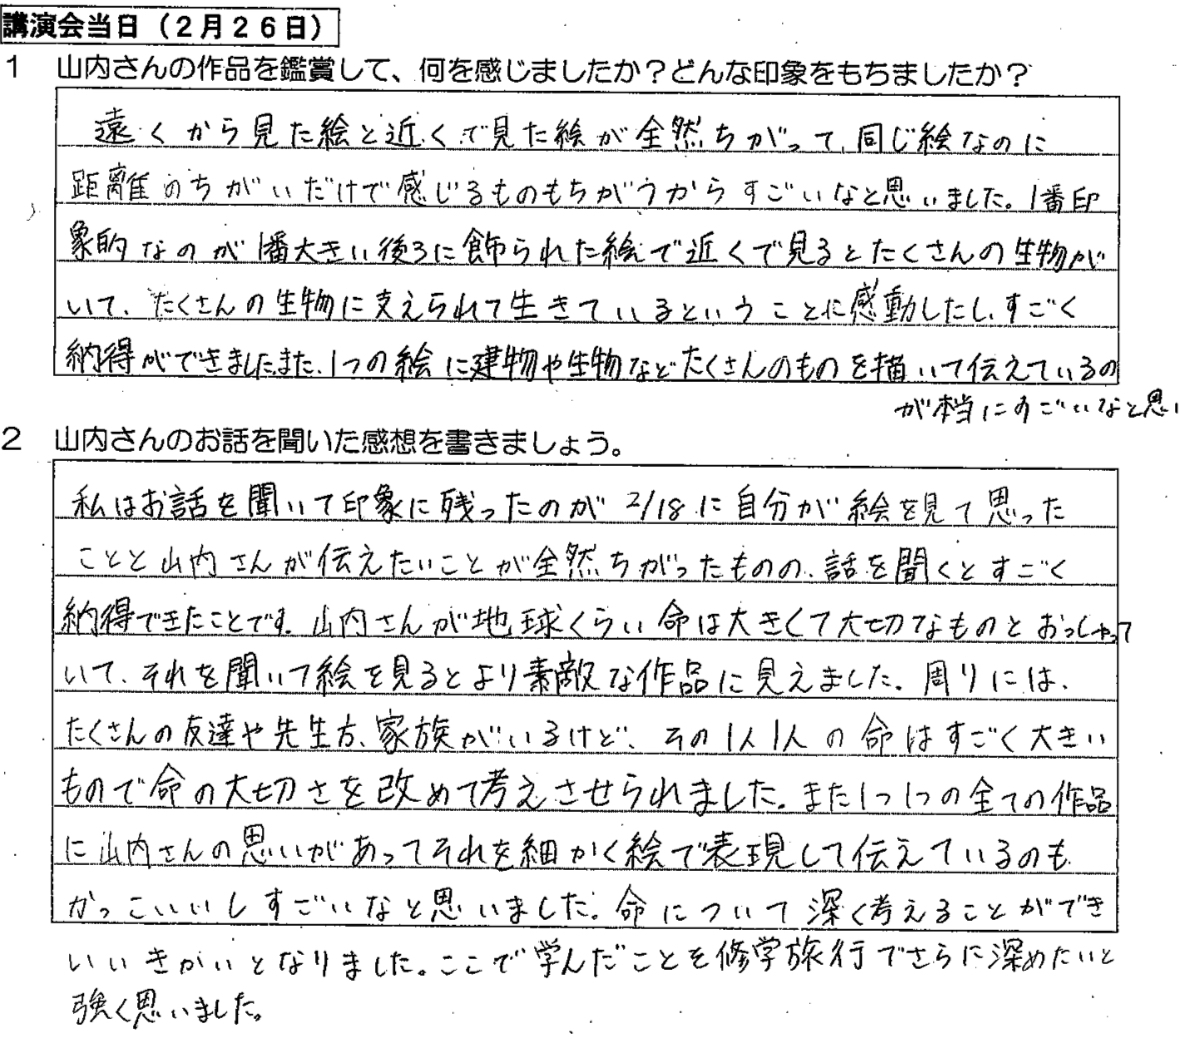 講演会当日（２月２６日）
１　山内さんの作品を鑑賞して、何を感じましたか？どんな印象をもちましたか？
遠くから見た絵と近くで見た絵が全然ちがって、同じ絵なのに
距離のちがいだけで感じるものもちがうからすごいなと思いました。1番印
象的なのが1番大きい後ろに飾られた絵で近くで見るとたくさんの生物が
いて、たくさんの生物に支えられて生きているということに感動したし、すごく
納得ができました。また、1つの絵に建物や生物などたくさんのものを描いて伝えているの
が本当にすごいなと思い
２　山内さんのお話を聞いた感想を書きましょう。
私はお話を聞いて印象に残ったのが2/18に自分が絵を見て思った
ことと山内さんが伝えたいことが全然ちがったものの、話を聞くとすごく
納得できたことです。山内さんが地球くらい命は大きくて大切なものとおっしゃって
いて、それを聞いて絵を見るとより素敵な作品に見えました。周りには、
たくさんの友達や先生方、家族がいるけど、その1人1人の命はすごく大きい
もので命の大切さを改めて考えさせられました。また1つ1つの全ての作品
に山内さんの思いがあってそれを細かく絵で表現して伝えているのも
かっこいいしすごいなと思いました。命について深く考えることができ
いいきかいとなりました。ここで学んだことを修学旅行でさらに深めたいと
強く思いました。